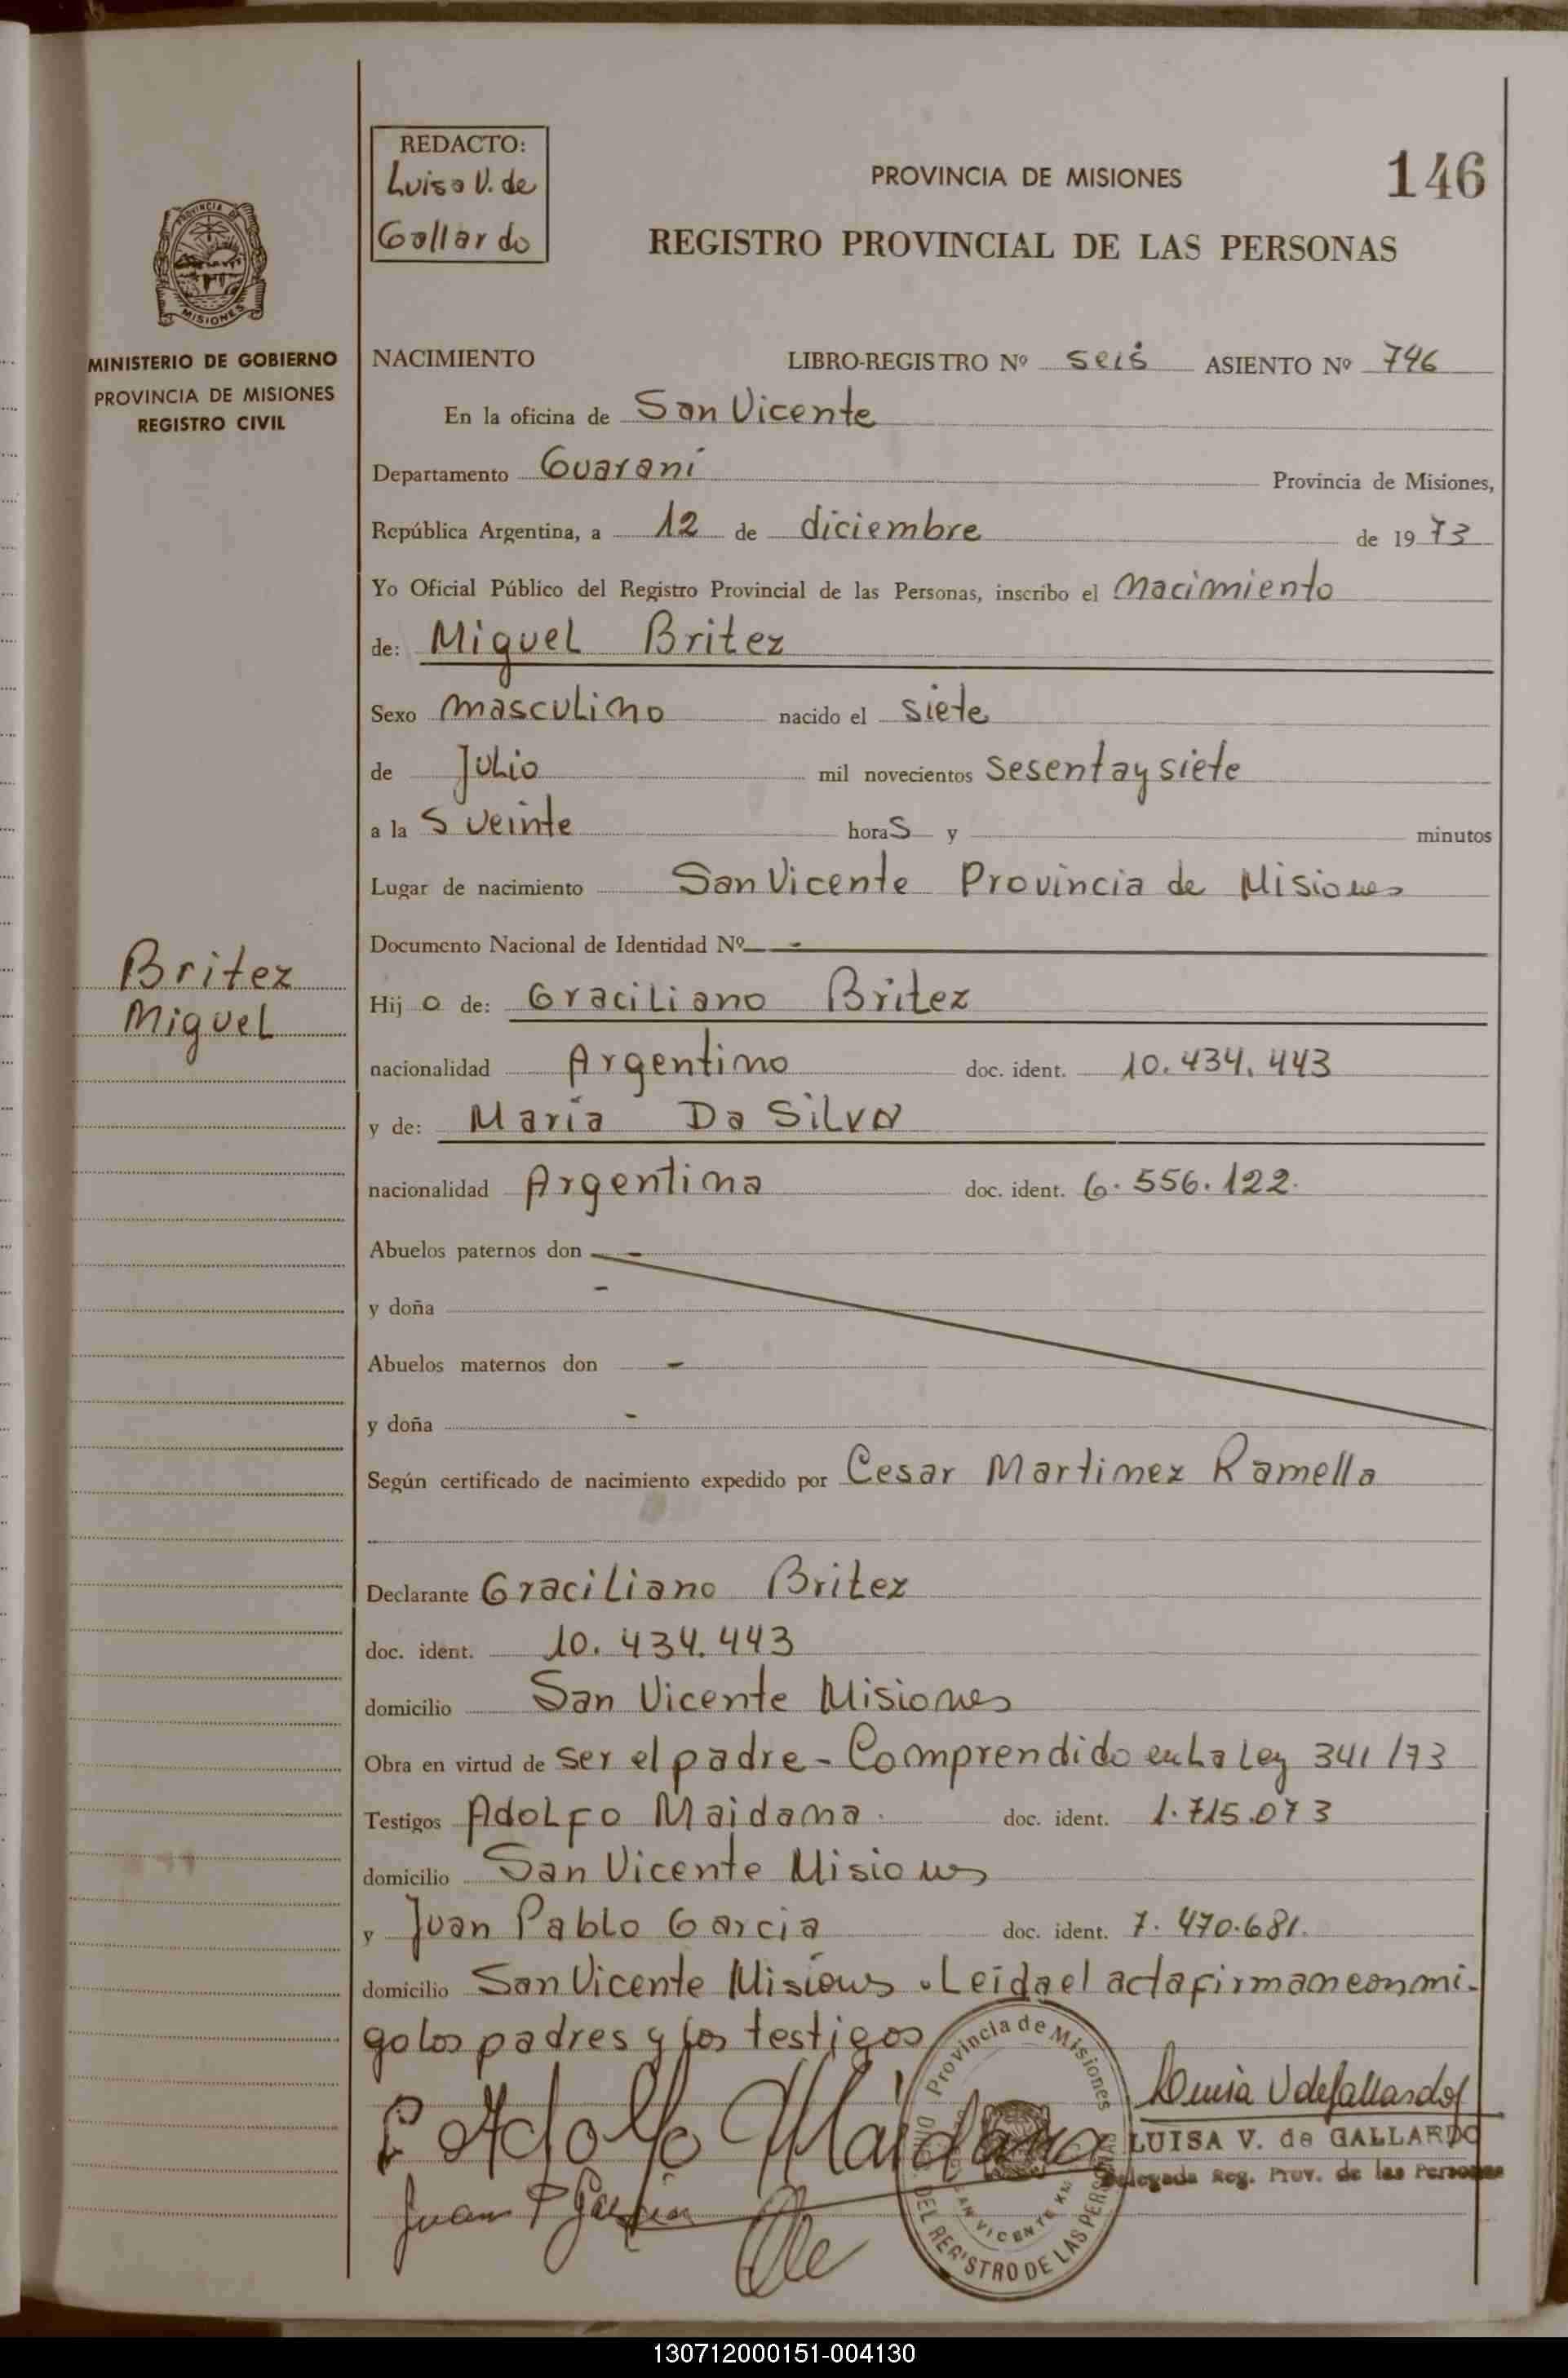 REDACTO:
Luisa V. de
Gallardo
PROVINCIA DE MISIONES
146
REGISTRO PROVINCIAL DE LAS PERSONAS
PROVINCIA DE
MISIONES
MINISTERIO DE GOBIERNO
PROVINCIA DE MISIONES
REGISTRO CIVIL
NACIMIENTO LIBRO-REGISTRO Nº seis ASIENTO Nº 746
En la oficina de San Vicente
Departamento Guaraní Provincia de Misiones,
República Argentina, a 12 de diciembre de 1973
Yo Oficial Público del Registro Provincial de las Personas, inscribo el Nacimiento
de: Miguel Britez
Sexo masculino nacido el siete
de Julio mil novecientos sesenta y siete
a la s veinte horas y minutos
Lugar de nacimiento San Vicente Provincia de Misiones
Documento Nacional de Identidad Nº -
Britez
Miguel
Hijo de: Graciliano Britez
nacionalidad Argentino doc. ident. 10.434.443
y de: María Da Silva
nacionalidad Argentina doc. ident. 6.556.122.
Abuelos paternos don -
y doña -
Abuelos maternos don -
y doña -
Según certificado de nacimiento expedido por Cesar Martinez Ramella
Declarante Graciliano Britez
doc. ident. 10.434.443
domicilio San Vicente Misiones
Obra en virtud de ser el padre - Comprendido en La Ley 341/73
Testigos Adolfo Maidana. doc. ident. 1.715.073
domicilio San Vicente Misiones
y Juan Pablo Garcia doc. ident. 7.470.681.
domicilio San Vicente Misiones. Leída el acta firman conmi-
go los padres y los testigos
Adolfo Maidana
Juan P Garcia
Luisa V de Gallardo
LUISA V. de GALLARDO
Delegada Reg. Prov. de las Personas
Provincia de Misiones
DEL REGISTRO DE LAS PERSONAS
SAN VICENTE KM
130712000151-004130